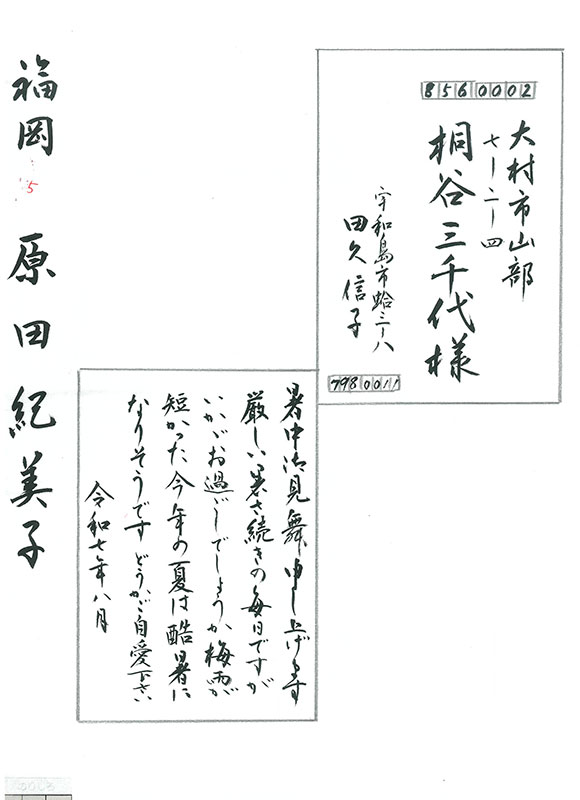 8560002
大村市山部
七ー二ー四
桐谷三千代様
宇和島市蛤三ー八
田久信子
7980011
暑中御見舞申し上げます
厳しい暑さ続きの毎日ですが
いかがお過ごしでしょうか梅雨が
短かった今年の夏は酷暑に
なりそうですどうかご自愛下さい
令和七年八月
福岡
5
原田紀美子